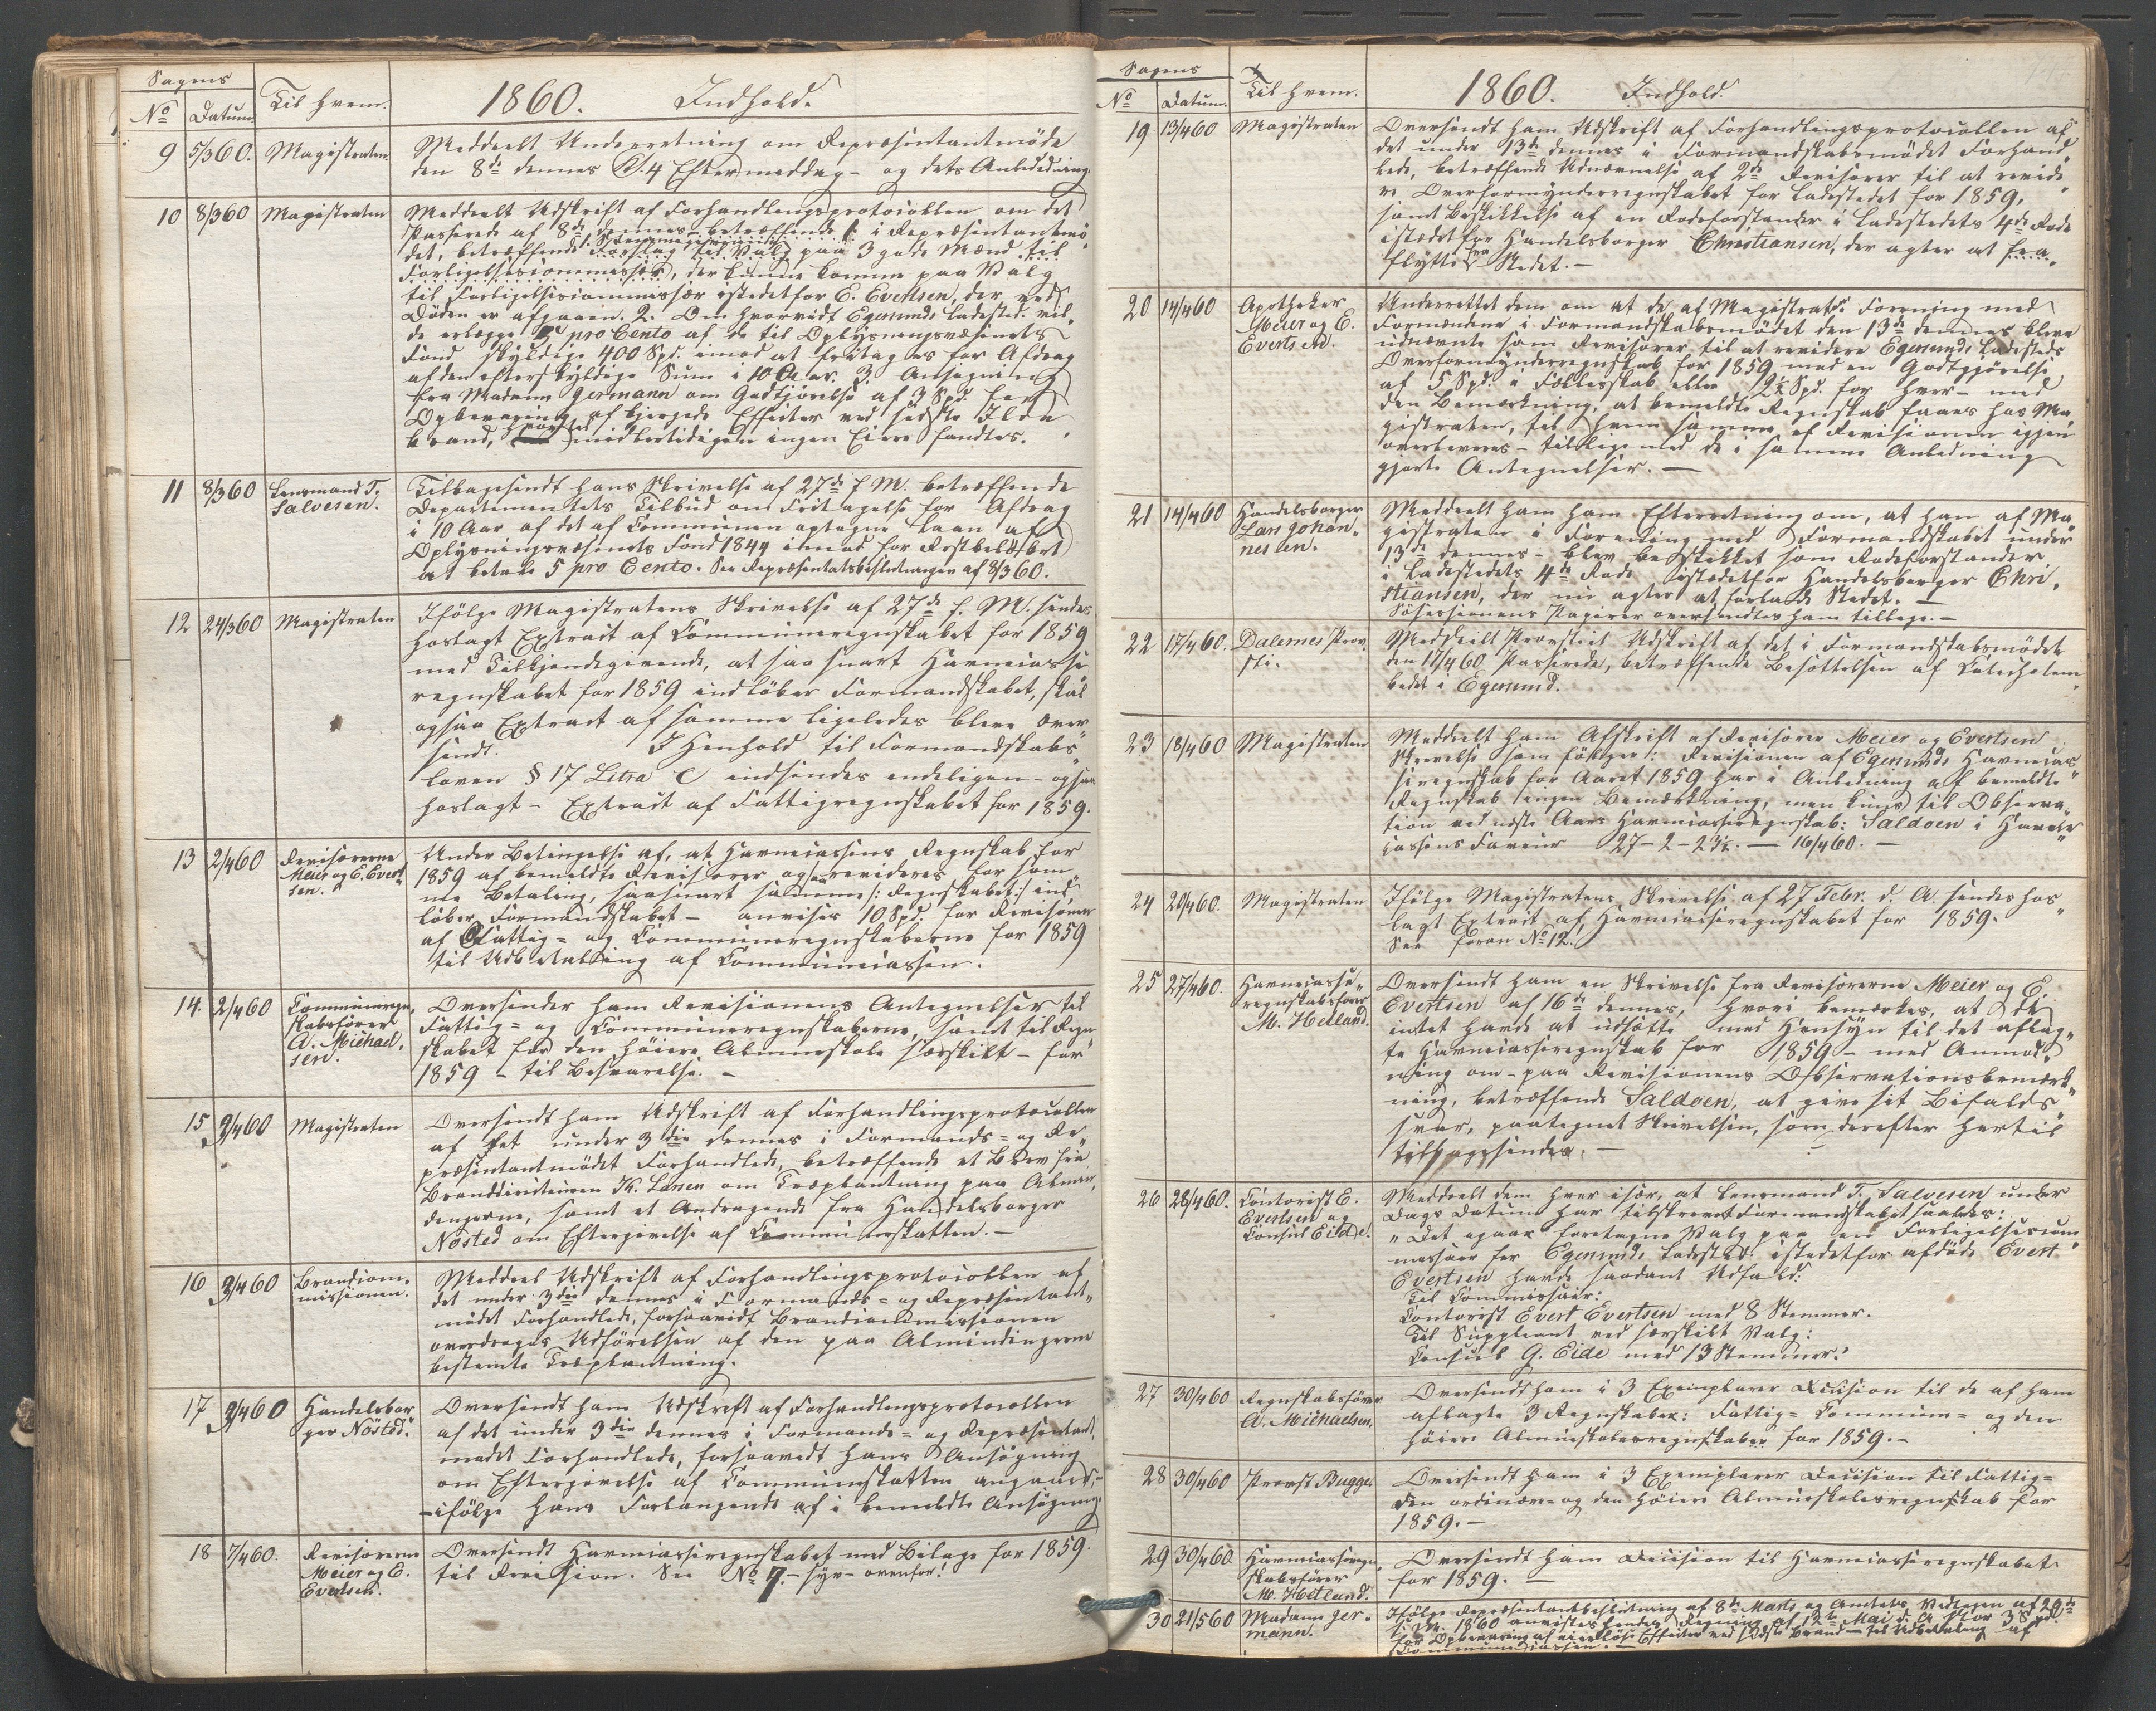 Sagens
No Datum
Til Hvem.
1860. Indhold.
9 5/3 60. Magistraten.
Meddeelt Underretning om Repræsentantmøde
den 8de dennes Kl. 4 Eftermiddag - og dets Anledning.
10 8/3 60 Magistraten
Meddeelt Udskrift af Forhandlingsprotocollen om det
Passerede af 8de dennes betræffende 1: i Repræsentantmø-
det, betræffende Forslag til Valg paa 3 gode Mænd til
Forligelsescommissær, der kunne komme paa Valg
til Forligelsescommissær istedetfor E. Evertsen, der ved
Døden er afgaaen. 2. Om hvorvidt Egersunds Ladested vil-
de erlægge 5 pro Cento af de til Oplysningsvæsenets
Fond skyldige 400 Spd. imod at fritages for Afdrag
af den efterskyldige Sum i 10 Aar. 3. Ansøgning
fra Madam Germann om Godtgjørelse af 3 Spd. for
Opbevaring af bjergede Effecter ved sidste Ilde-
brand, hvortil midlertidigen ingen Eiere fandtes.
11 8/3 60 Lensmand T.
Salvesen.
Tilbagesendt hans Skrivelse af 27de f. M. betræffende
Departementets Tilbud om Fritagelse for Afdrag
i 10 Aar af det af Communen optagne Laan af
Oplysningsvæsenets Fond 1844 imod for Restbeløbet
at betale 5 pro Cento. See Repræsentatsbeslutningen af 8/3 60.
12 24/3 60 Magistraten
Ifølge Magistratens Skrivelse af 27de f. M. sendes
hoslagt Extract af Communeregnskabet for 1859
med Tilkjendegivende, at saa snart Havnecasse-
regnskabet for 1859 indløber Formandskabet, skal
ogsaa Extract af samme ligeledes blive over-
sendt. I Henhold til Formandskabs-
loven § 17 Litra c indsendes endeligen - ogsaa
hoslagt - Extract af Fattigregnskabet for 1859.
13 2/4 60 Revisorerne
Meier og E. Evert-
sen.
Under Betingelse af, at Havnecassens Regnskab for
1859 af bemeldte Revisorer ogsaa revideres for sam-
me Betaling, saasnart samme /: Regnskabet :/ ind-
løber Formandskabet - anvises 10 Spd. for Revisionen
af Fattig- og Communeregnskaberne for 1859
til Udbetaling af Communecassen.
14. 2/4 60 Communeregn-
skabsfører
A. Michael-
sen.
Oversender ham Revisionens Antegnelser til
Fattig- og Communeregnskaberne, samt til Regn-
skabet for den høiere Almueskole særskilt - for
1859 - til Besvarelse. -
15 3/4 60 Magistraten
Oversendt ham Udskrift af Forhandlingsprotocollen
af det under 3die dennes i Formands- og Re-
præsentantmødet Forhandlede, betræffende et Brev fra
Branddirecteuren K. Larsen om Træplantning paa Almin-
dengerne, samt et Andragende fra Handelsborger
Nøsted om Eftergivelse af Communeskatten. -
16 3/4 60 Brandcom-
missionen.
Meddeel Udskrift af Forhandlingsprotocollen af
det under 3die dennes i Formands- og Repræsentant-
mødet Forhandlede, forsaavidt Brandcommissionen
overdrages Udførelsen af den paa Almindingerne
bestemte Træplantning.
17 3/4 60 Handelsbor-
ger Nøsted.
Oversendt ham Udskrift af Forhandlingsprotocollen
af det under 3die dennes i Formands- og Repræsentant-
mødet Forhandlede, forsaavidt hans Ansøgning
om Eftergivelse af Communeskatten angaaer, -
- ifølge hans Forlangende af i bemeldte Ansøgning.
18 7/4 60. Revisorerne
Meier og E.
Evertsen.
Oversendt Havnecasseregnskabet med Bilage for 1859
til Revision. See No 7. - syv - ovenfor.
Sagens
No Datum.
Til Hvem.
1860. Indhold.
19 13/4 60 Magistraten
Oversendt ham Udskrift af Forhandlingsprotocollen af
det under 13de dennes i Formandskabsmødet Forhand-
lede, betræffende Udnævnelse af 2de Revisorer til at revide-
re Overformynderregnskabet for Ladestedet for 1859,
samt Beskikkelse af en Rodeforstander i Ladestedets 4de Rode
istedetfor Handelsborger Christiansen, der agter at fra-
flytte Stedet. -
20 14/4 60 Apotheker
Meier og E.
Evertsen.
Underrettet dem om at de af Magistraten i Forening med
Formændene i Formandskabsmødet den 13de dennes bleve
udnævnte som Revisorer til at revidere Egersunds Ladesteds
Overformynderregnskab for 1859 med en Godtgjørelse
af 5 Spd. i Fællesskab eller 2½ Spd. for hver - med
den Bemærkning, at bemeldte Regnskab faaes hos Ma-
gistraten, til hvem samme af Revisionen igjen
overleveres - tilligemed de i samme Anledning
gjorte Antegnelser. -
21 14/4 60 Handelsborger
Lars Johan-
nessen.
Meddeelt ham Efterretning om, at han af Ma-
gistraten i Forening med Formandskabet under
13de dennes - blev beskikket som Rodeforstander
i Ladestedets 4de Rode istedetfor Handelsborger Chri-
stiansen, der nu agter at forlade Stedet. -
Søsessionens Papirer oversendtes ham tillige. -
22 17/4 60. Dalernes Prov-
sti.
Meddeelt Provstiet Udskrift af det i Formandskabsmødet
den 17/4 60 Passerede, betræffende Besættelsen af Catechetem-
bedet i Egersund.
23 18/4 60 Magistraten
Meddeelt ham Afskrift af Revisorer Meier og Evertsen
Skrivelse som følger: Revisionen af Egersunds Havnecas-
seregnskab for Aaret 1859 har i Anledning af bemeldte
Regnskab ingen Bemærkning, men kuns til Observa-
tion ved næste Aars Havnecasseregnskab: Saldoen i Havne-
cassens Faveur 27-2-23½. - 16/4 60. -
24 20/4 60. Magistraten
Ifølge Magistratens Skrivelse af 27 Febr. d. A. sendes hos-
lagt Extract af Havnecasseregnskabet for 1859.
See foran No 12.
25 27/4 60. Havnecasse-
regnskabsfører
M. Hetland.
Oversendt ham en Skrivelse fra Revisorerne Meier og E.
Evertsen af 16de dennes, hvori bemærkes, at de
intet havde at udsætte med Hensyn til det aflag-
te Havnecasseregnskab for 1859 - med Anmod-
ning om - paa Revisionens Observationsbemærk-
ning, betræffende Saldoen, at give sit Bifalds-
svar, paategnet Skrivelsen, som derefter hertil
tilbagesendes. -
26 28/4 60. Contorist E.
Evertsen og
Consul Eide.
Meddeelt dem hver især, at Lensmand T. Salvesen under
Dags Datum har tilskrevet Formandskabet saaledes:
"Det igaar foretagne Valg paa en Forligelsescom-
missair for Egersunds Ladested istedetfor afdøde Evert
Evertsen havde saadant Udfald:
Til Commissair:
Contorist Evert Evertsen med 8 Stemmer.
Til Suppleant ved særskilt Valg:
Consul G. Eide med 13 Stemmer."
27 30/4 60 Regnskabsfører
A. Michaelsen.
Oversendt ham i 3 Exemplarer Decision til de af ham
aflagte 3 Regnskaber: Fattig- Commune- og den
høiere Almueskolesregnskaber for 1859. -
28 30/4 60 Provst Bugge.
Oversendt ham i 3 Exemplarer Decision til Fattig-
den ordinære- og den høiere Almueskolesregnskab for
1859. -
29 30/4 60 Havnecasseregn-
skabsfører
M. Hetland.
Oversendt ham Decision til Havnecasseregnskabet
for 1859. -
30 21/5 60 Madame Ger-
mann.
Ifølge Repræsentantbeslutning af 8de Marts og Amtets Vedtagen af 20de
1860 anvistes hendes Regning af 12te Mai d. A. stor 3 Spd.
for Opbevaring af eierløse Effecter ved sidste Brand - til Udbetaling af
Communecassen. -